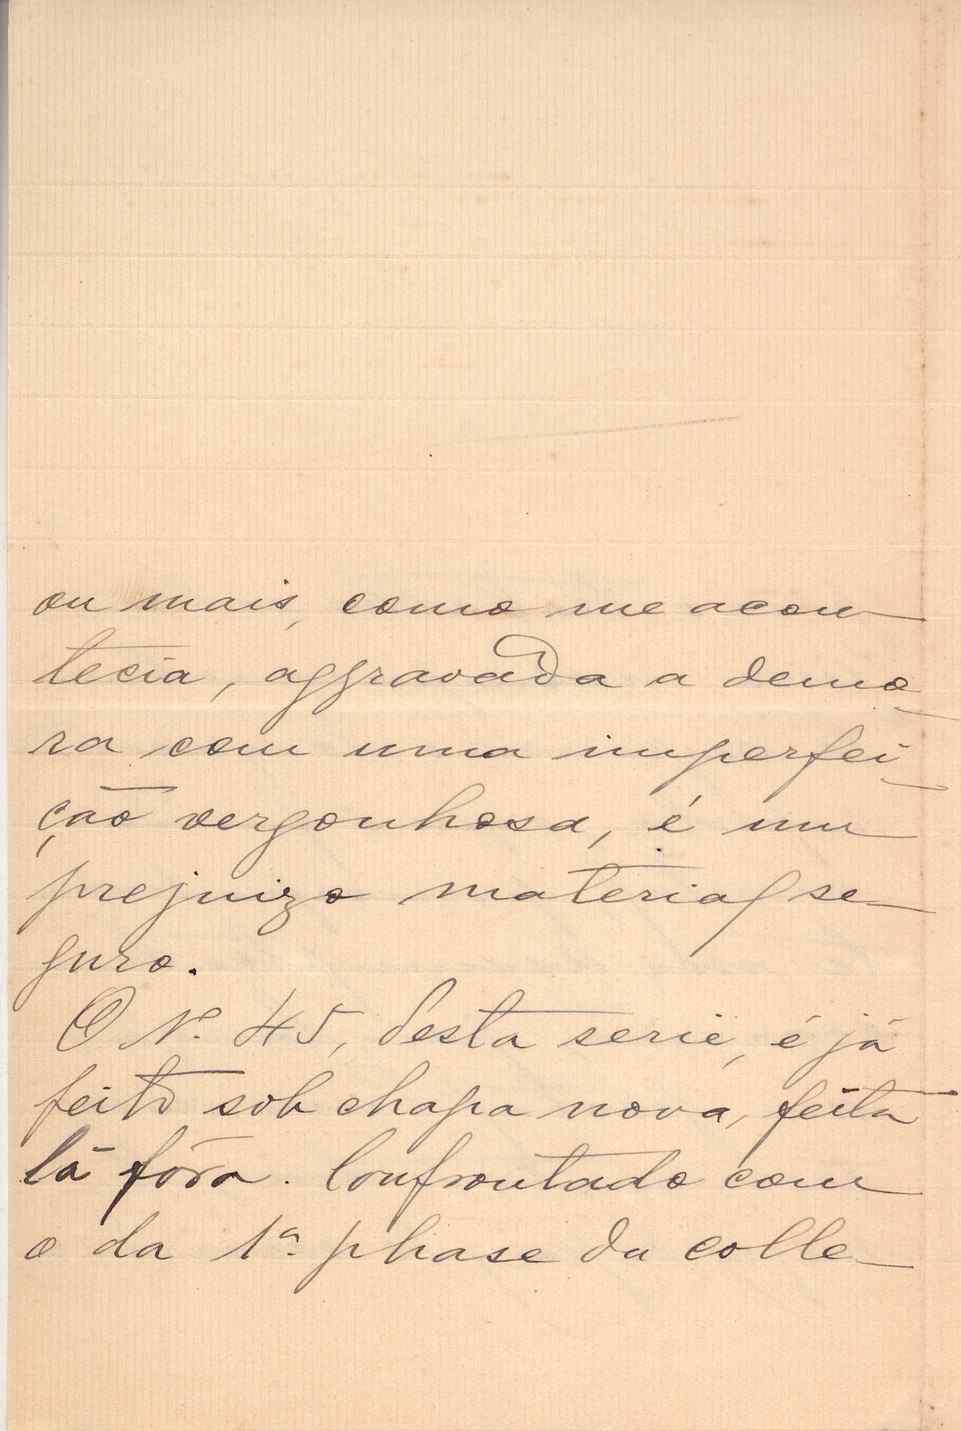 ou mais, como me acon-
tecia, aggravada a demo-
ra com uma imperfei-
ção vergonhosa, é um
prejuizo material se-
guro.
O Nº. 45, desta serie, é já
feito sob chapa nova, feita
lá fóra. Confrontado com
o da 1ª. phase da colle-